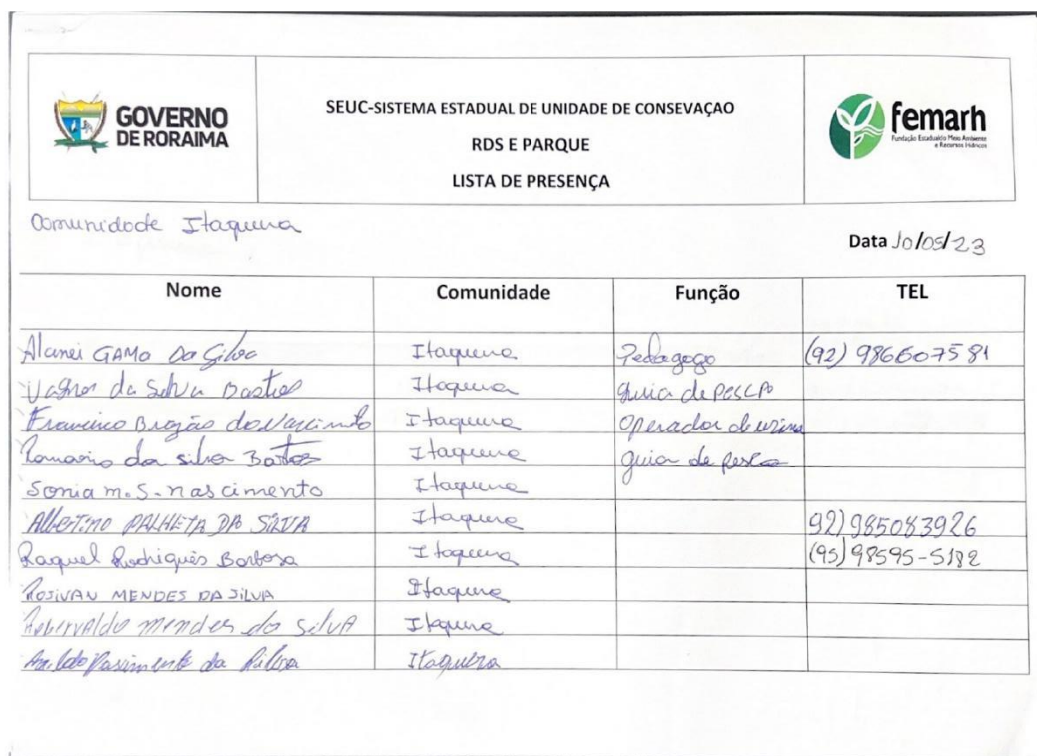 GOVERNO
DE RORAIMA
SEUC-SISTEMA ESTADUAL DE UNIDADE DE CONSEVAÇAO
RDS E PARQUE
LISTA DE PRESENÇA
femarh
Fundação Estadual do Meio Ambiente
e Recursos Hídricos
Comunidade Itaquera
Data 10/05/23
Nome Comunidade Função TEL
Alanei GAMA Da Silva Itaquera Pedagogo (92) 986607581
Vagner da Silva Bastos Itaquera guia de pesca
Francisco Brazão do Nascimento Itaquera Operador de usina
Romario da silva Bastos Itaquera guia de pesca
Sonia m. S. nascimento Itaquera
Albertino PALHETA DA SILVA Itaquera 92) 985083926
Raquel Rodrigues Barbosa Itaquera (95) 98595-5182
ROSIVAN MENDES DA SILVA Itaquera
mendes da SilvA Itaquera
da Itaquera